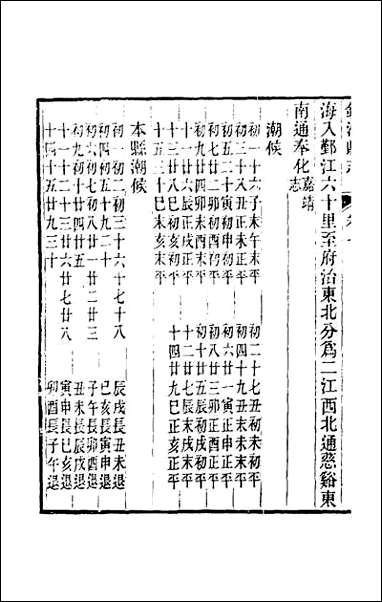 鎮海縣志 卷一
海入鄞江六十里至府治東北分爲二江西北通慈谿東
南通奉化嘉靖志
潮候
初一十六子未午未平 初二十七丑初未初平
初三十八丑正未正平 初四十九丑末未末平
初五二十寅初申初平 初六廿一寅正申正平
初七廿二卯初酉初平 初八廿三卯正酉正平
初九廿四卯末酉末平 初十廿五戌初戌初平
十一廿六辰正戌正平 十二廿七辰末戌末平
十三廿八巳初亥初平 十四廿九巳正亥正平
十五三十巳末亥末平
本縣潮候
初一初二初三十六十七十八 辰戌長丑未退
初四初五十九二十 巳亥長寅申退
初六初七初八廿一廿二廿三 子午長卯酉退
初九初十廿四廿五 丑未長辰戌退
十一十二十三廿六廿七廿八 寅申長巳亥退
十四十五廿九三十 卯酉長子午退